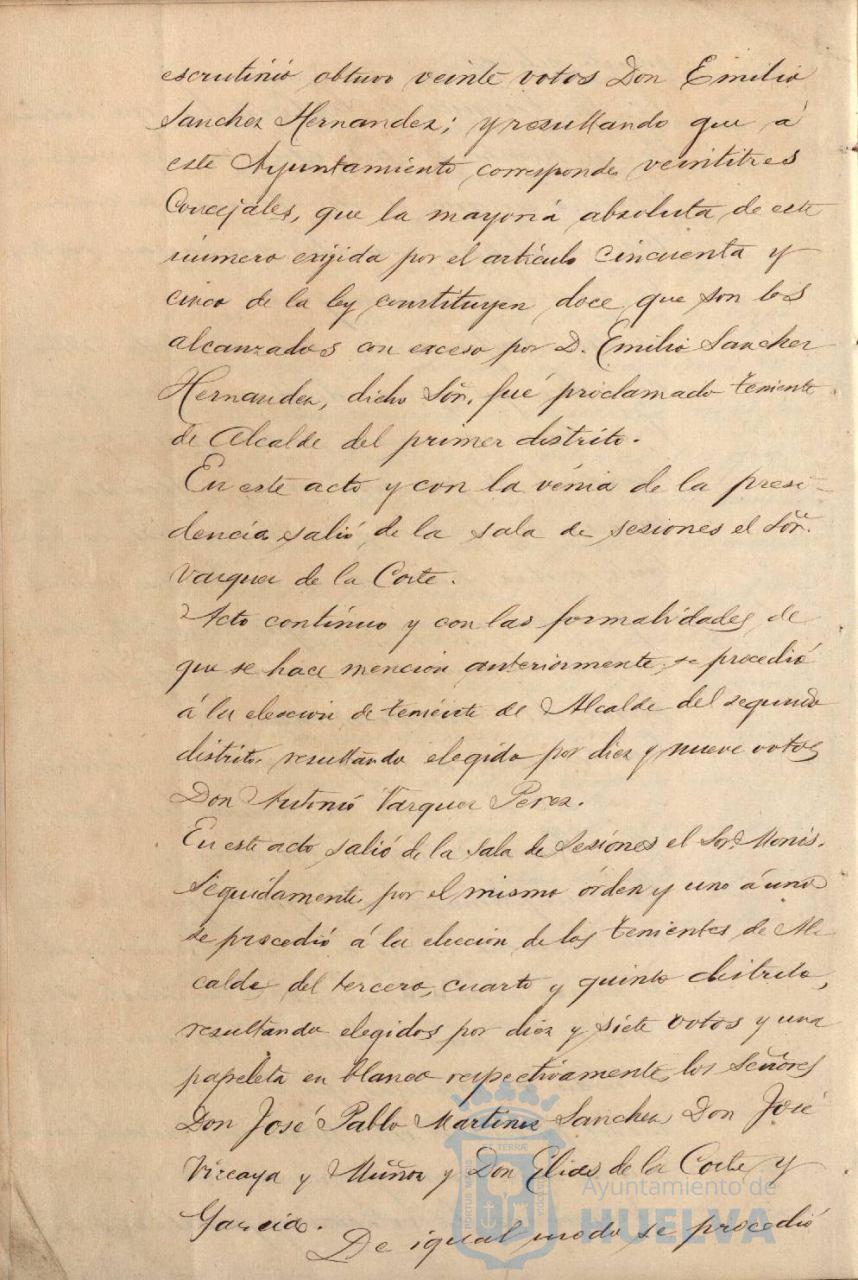 escrutinió obtuvo veinte votos Don Emilio
Sanchez Hernandez; y resultando que á
este Ayuntamiento corresponde veintitres
Concejales, que la mayoria absoluta de este
número exijida por el artículo cincuenta y
cinco de la ley constituyen doce que son los
alcanzados con exceso por D. Emilio Sanchez
Hernandez, dicho Sör. fué proclamado teniente
de Alcalde del primer distrito.
En este acto y con la vénia de la presi-
dencia salió de la sala de sesiones el Sör.
Vazquez de la Corte.
Acto contínuo y con las formalidades de
que se hace mencion anteriormente, se procedió
á la eleccion de teniente de Alcalde del segundo
distrito resultando elegido por diez y nueve votos
Don Antonió Vazquez Perez.
En este acto salió de la Sala de Sesiónes el Sor. Monis.
Seguidamente por el mismo órden y uno á uno
se procedió á la eleccion de los tenientes de Al-
calde del tercero, cuarto y quinto distrito,
resultando elegidos por diez y siete votos y una
papeleta en blanco respectivamente los Señores
Don José Pablo Martinez Sanchez Don José
Vizcaya y Muñoz y Don Elias de la Corte y
Garcia.
De igual modo se procedió
Ayuntamiento de
HUELVA